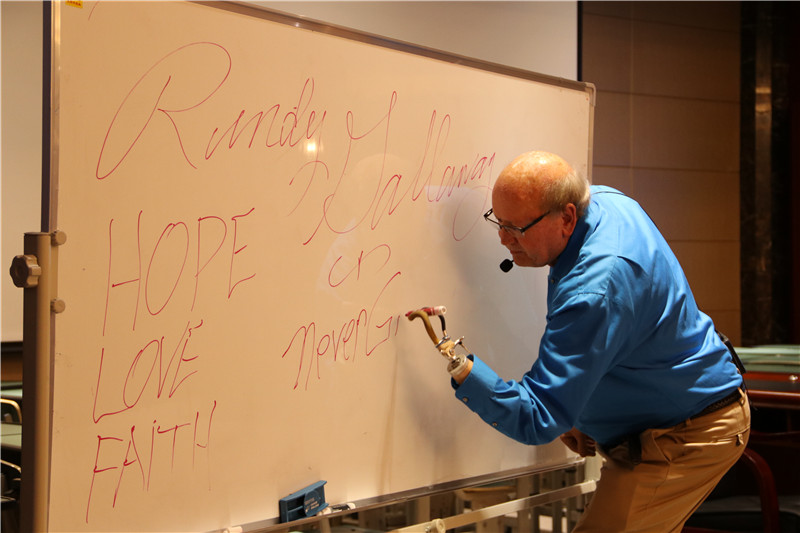 Randy Gallaway
HOPE
LOVE
FAITH
never G